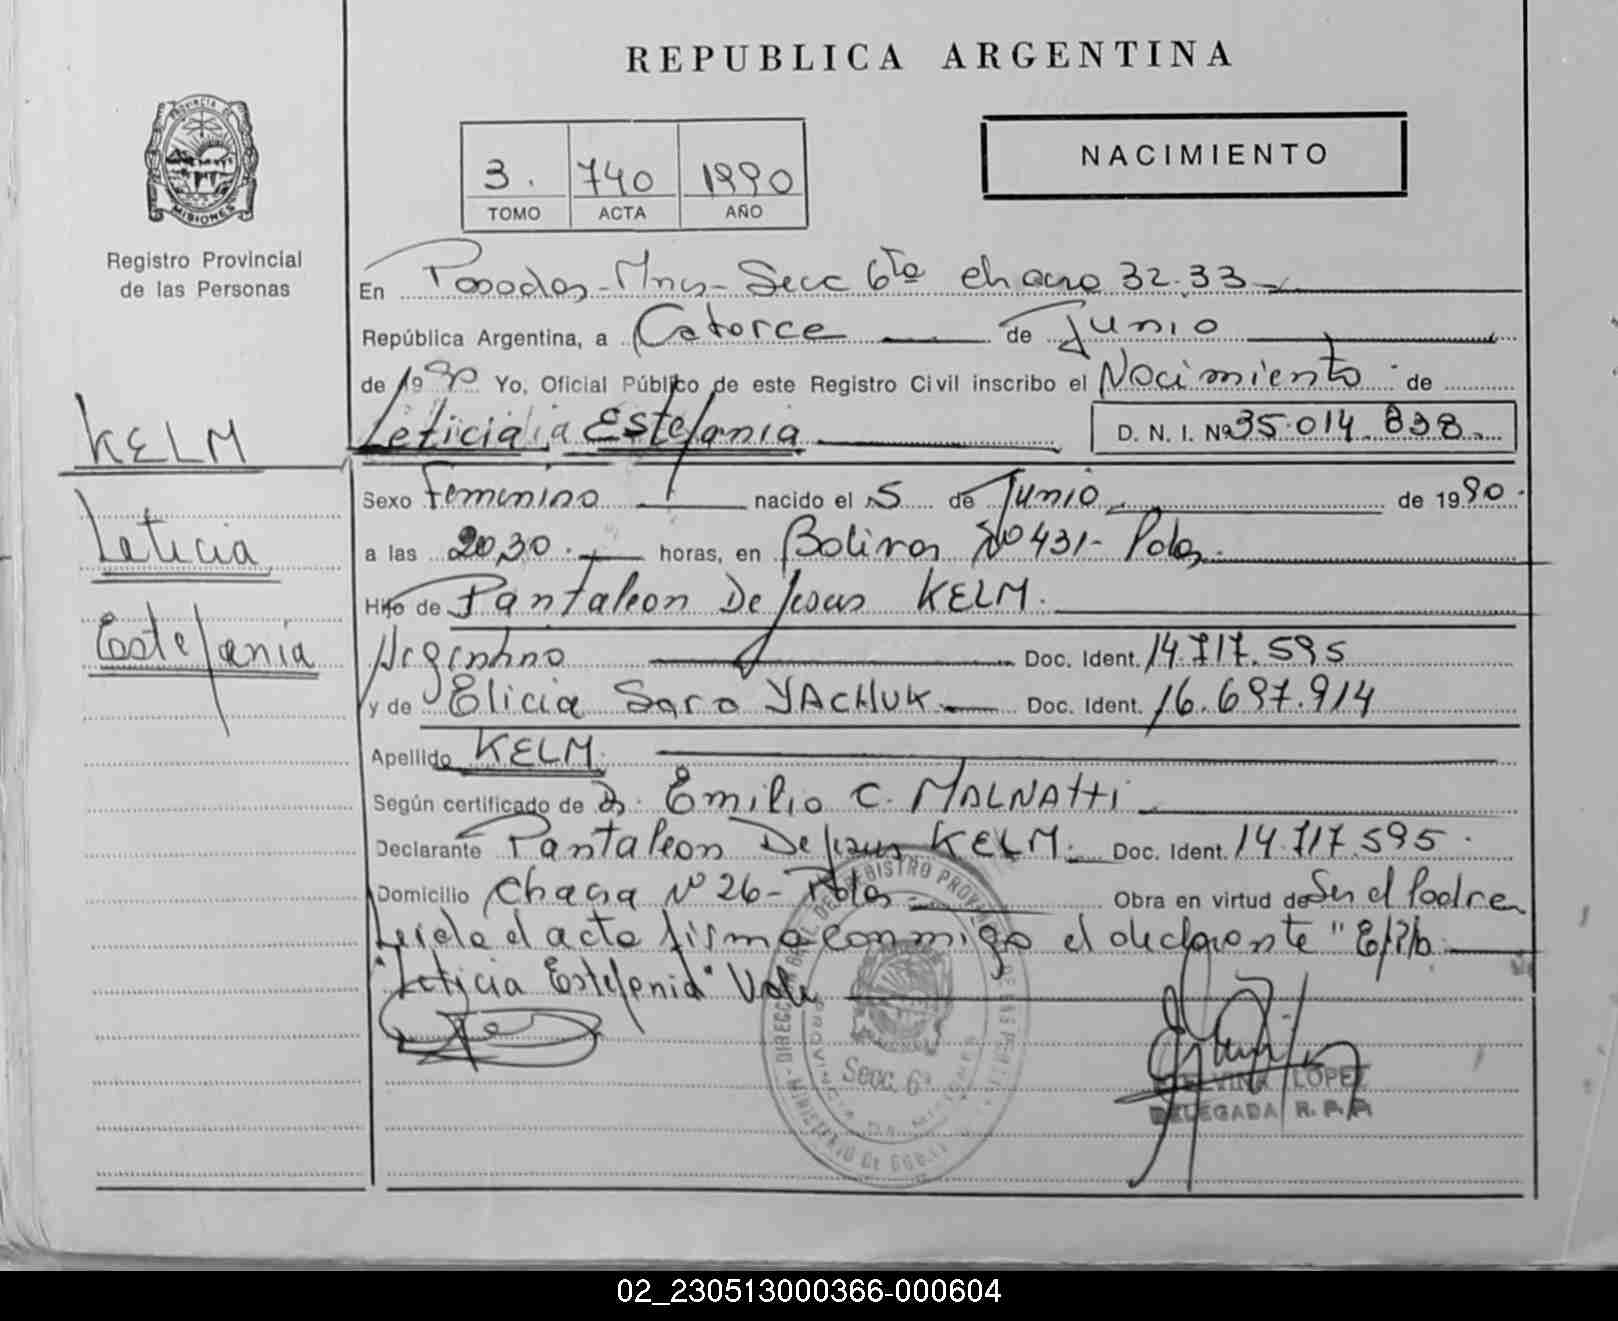 REPUBLICA ARGENTINA
PROVINCIA DE
MISIONES
Registro Provincial
de las Personas
3. 740 1990
TOMO ACTA AÑO
NACIMIENTO
En Posadas - Mnes - Secc 6ta chacra 32-33
República Argentina, a Catorce de Junio
de 1990 Yo, Oficial Público de este Registro Civil inscribo el Nacimiento de
Leticia Estefania D. N. I. Nº 35.014.838
KELM
Leticia
Estefania
Sexo Femenino nacido el 5 de Junio de 1990
a las 20,30 horas, en Bolivar Nº 431 - Pdas
Hijo de Pantaleon De Jesus KELM
Argentino Doc. Ident. 14.717.595
y de Elicia Sara YACHUK Doc. Ident. 16.697.914
Apellido KELM
Según certificado de Dr. Emilio C. MALNATTI
Declarante Pantaleon De Jesus KELM Doc. Ident. 14.717.595
Domicilio Chacra Nº 26 - Pdas Obra en virtud de Ser el Padre
Leida el acta firma conmigo el declarante
"Leticia Estefania" Vale
Secc. 6ª
LOPEZ
DELEGADA R. P. P.
02_230513000366-000604